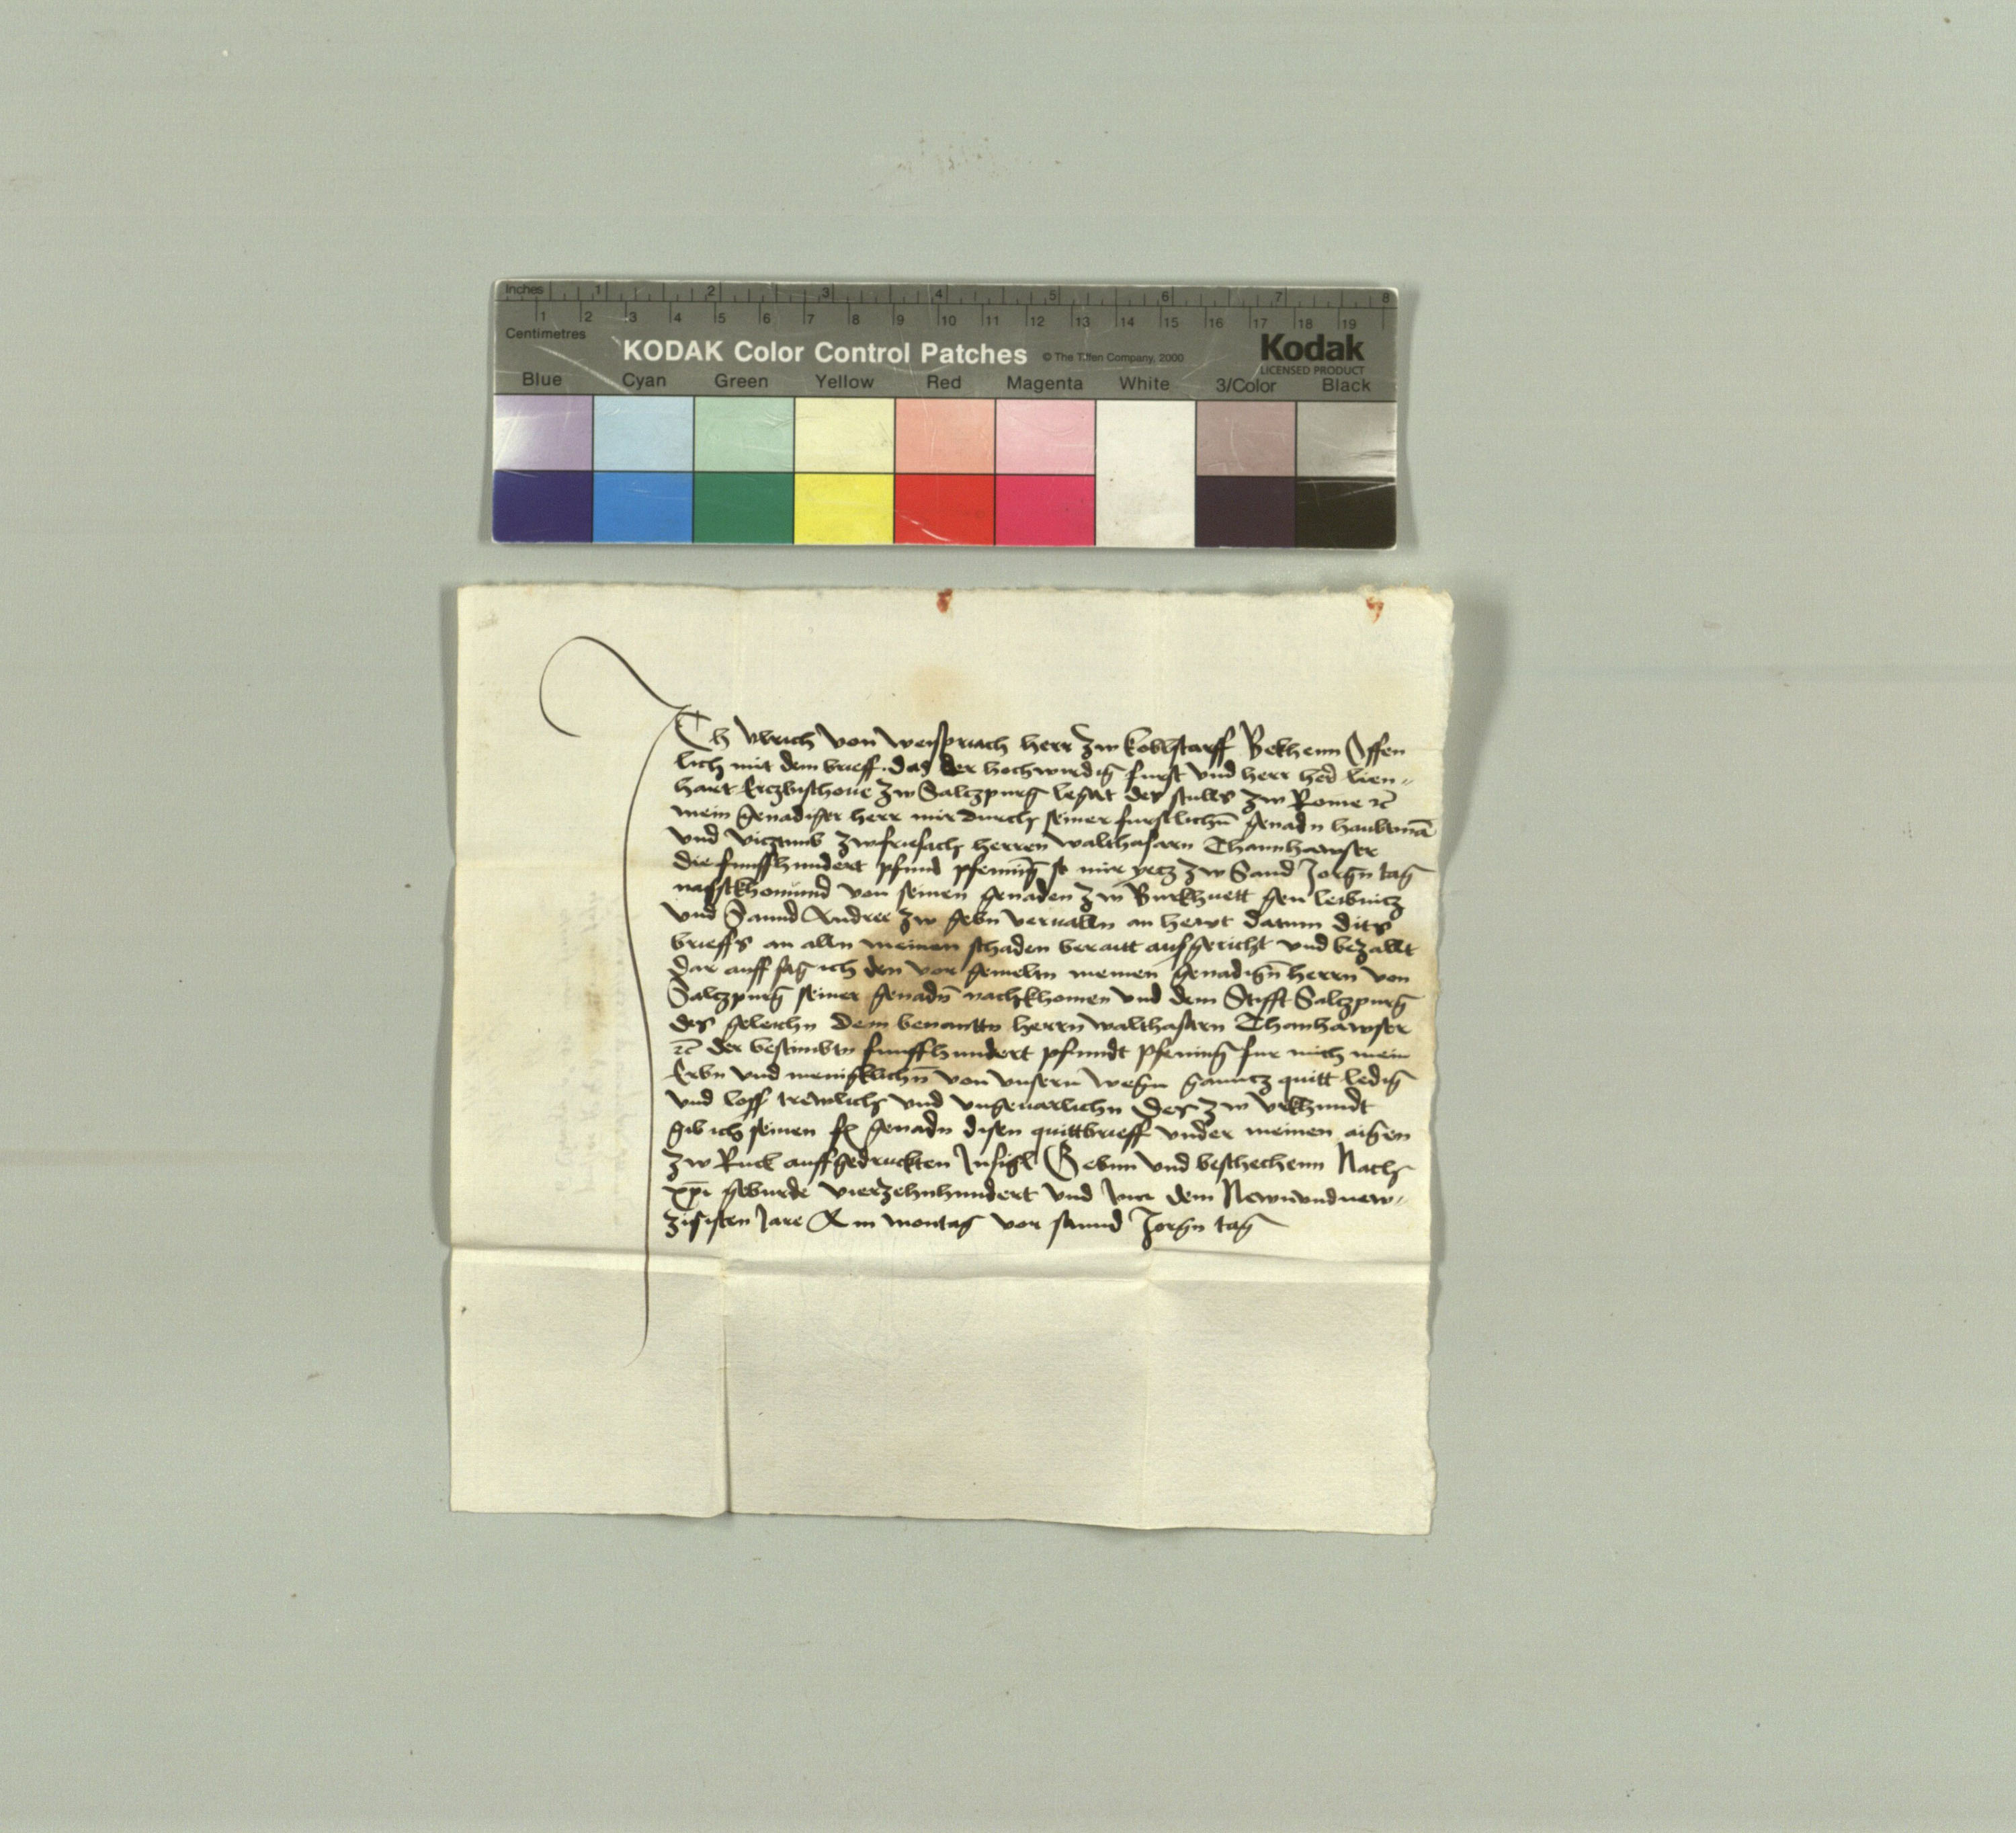 Inches 1 2 3 4 5 6 7 8
1 2 3 4 5 6 7 8 9 10 11 12 13 14 15 16 17 18 19
Centimetres
KODAK Color Control Patches © The Tiffen Company, 2000 Kodak
LICENSED PRODUCT
Blue Cyan Green Yellow Red Magenta White 3/Color Black
Ich Ulrich von Weispriach herr zw Koblstarff Bekhenn Offen
lich mit dem brieff. das der hochwirdig furst und herr her lien-
hart Erczbischove zw Salczpurg legat des stulls zw Rome ꝛc
mein genadiger herr mir durch seiner furstlichn̄ genadn haubtmā
und vicztumb zw friesach herren walthasarn Thannhawser
die funffhundert pfund pfenning so mir yecz zw Sand Jorgn tag
nagstkhomund von seinen genaden zw Burkhuett gen leibnicz
und Sannd Andree zw gebn vervalln an hewt datum dits
brieffs an alln meinen schaden beraitt ausgericht und bezallt
dar auff sag ich den vor gemeltn meinen genadign̄ herrn von
Salczpurg seiner genadn̄ nachkhomen und dem Stifft Salczpurg
des geleichn dem benanttn herrn walthasarn Thanhawser
ꝛc der bestimbtn funffhundert pfundt pfening fur mich mein
Erbn und menigklichn̄ von unsern wegn ganntz quitt ledig
und loss trewlich und ungevarlichn Des zw urkhundt
gib ich seinen genadn disen quittbrieff under meinen aigen
zw Ruck auffgedruckten Insigl Gebnn und beschechenn Nach
xp̄i geburde vierzehnhundert und Jnn dem Newnundnew-
zigisten Jare Am montag vor sannd Jorgn tag